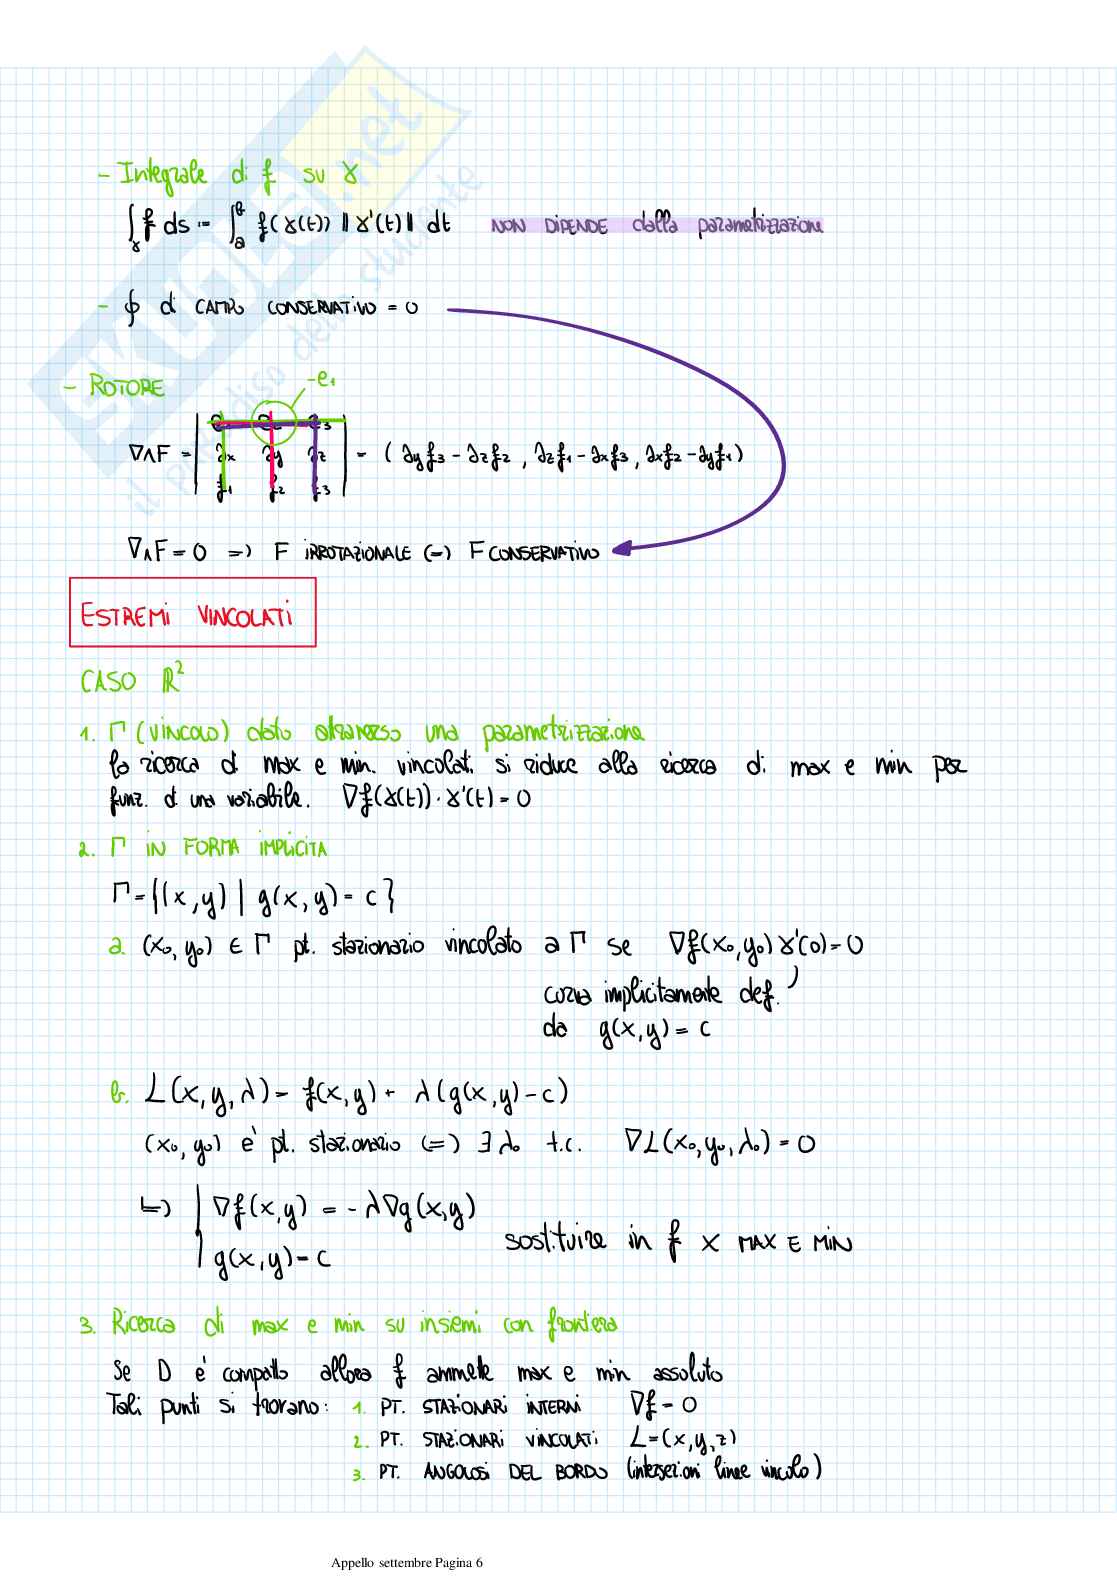 - Integrale di f su γ
∫_γ f ds = ∫_a^b f(γ(t)) ‖γ'(t)‖ dt NON DIPENDE dalla parametrizzazione
- ∮ di CAMPO CONSERVATIVO = 0
- ROTORE
-e₁
∇∧F = | e₁ e₂ e₃
∂x ∂y ∂z | = (∂y f₃ - ∂z f₂, ∂z f₁ - ∂x f₃, ∂x f₂ - ∂y f₁)
f₁ f₂ f₃
∇∧F = 0 => F IRROTAZIONALE (=) F CONSERVATIVO
ESTREMI VINCOLATI
CASO ℝ²
1. Γ (VINCOLO) dato attraverso una parametrizzazione
la ricerca di max e min. vincolati si riduce alla ricerca di max e min per
funz. di una variabile. ∇f(γ(t)) · γ'(t) = 0
2. Γ IN FORMA IMPLICITA
Γ = {(x,y) | g(x,y) = c}
a. (x₀, y₀) ∈ Γ pt. stazionario vincolato a Γ se ∇f(x₀,y₀) γ'(0) = 0
curva implicitamente def.
da g(x,y) = c
b. L(x,y,λ) = f(x,y) + λ(g(x,y) - c)
(x₀, y₀) è pt. stazionario (=) ∃ λ₀ t.c. ∇L(x₀,y₀,λ₀) = 0
=> | ∇f(x,y) = -λ∇g(x,y)
| g(x,y) = c
sostituire in f x MAX E MIN
3. Ricerca di max e min su insiemi con frontiera
Se D è compatto allora f ammette max e min assoluto
Tali punti si trovano: 1. PT. STAZIONARI INTERNI ∇f = 0
2. PT. STAZIONARI VINCOLATI L=(x,y,z)
3. PT. ANGOLOSI DEL BORDO (intersezioni linee vincolo)
Appello settembre Pagina 6